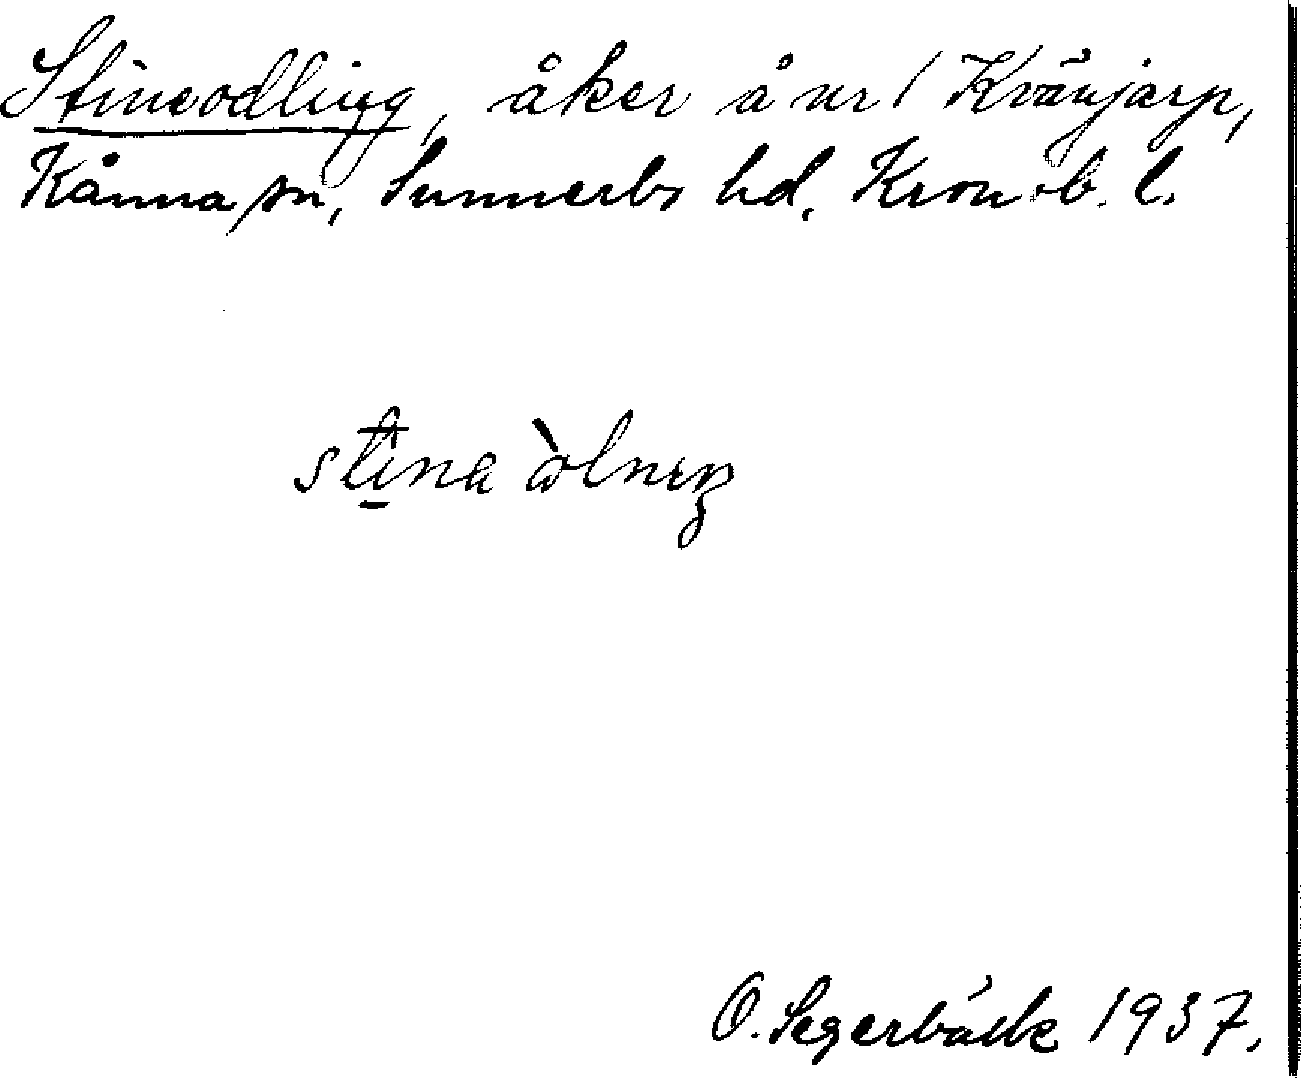 Stineodling, åker å nr 1 Kvänjarp,
Kånna sn, Sunnerbo hd, Kronob. l.
stina ò̀lnıŋ
O. Segerbäck 1937.